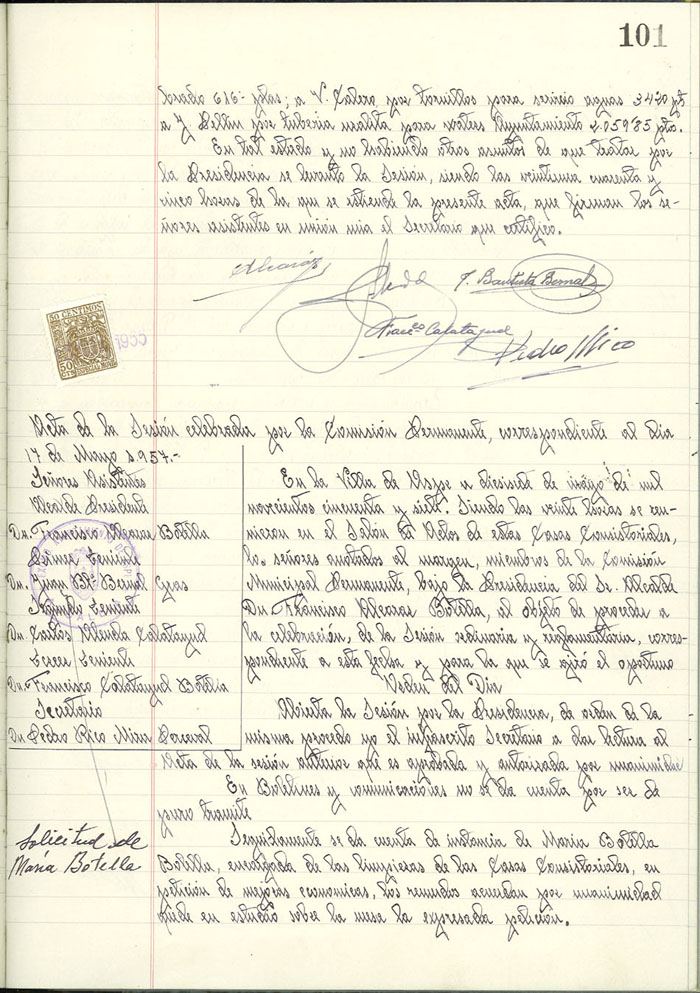 101
brado 616- ptas; a V. Calero por tornillos para servicio aguas 3420 pts
a J. Bellón por tuberia uralita para waters Ayuntamiento 2.059'85 pts.
En tal estado y no habiendo otros asuntos de que tratar por
la Presidencia se levantó la Sesión, siendo las veintiuna cuarenta y
cinco horas de la que se extiende la presente acta, que firman los se-
ñores asistentes en unión mia el Secretario que certifico.
Alcaráz
J. Bautista Bernal
Franco Calatayud
Pedro Rico
50 CENTIMOS
50
1955
Acta de la Sesión celebrada por la Comisión Permanente, correspondiente al dia
17 de Mayo 1957.-
Señores Asistentes
Alcalde Presidente
Dn. Francisco Alcaraz Botella
Primer Teniente
Dn. Juan Bta Bernal Gras
Segundo Teniente
Dn. Carlos Calatayud
Tercer Teniente
Dn. Francisco Calatayud Botella
Secretario
Dn Pedro Rico Mira Porcaval
En la Villa de Aspe a diecisete de mayo de mil
novecientos cincuenta y siete. Siendo las veinte horas se reu-
nieron en el Salón de Actos de estas Casas Consistoriales,
los señores anotados al margen, miembros de la Comisión
Municipal Permanente, bajo la Presidencia del Sr. Alcalde
Dn. Francisco Alcaraz Botella, al objeto de proceder a
la celebración, de la Sesión ordinaria y reglamentaria, corres-
pondiente a esta fecha y para la que se fijó el oportuno
Orden del Dia
Abierta la Sesión por la Presidencia, de orden de la
misma procedo yo el infrascrito Secretario a dar lectura al
Acta de la sesión anterior que es aprobada y autorizada por unanimidad
En Boletines y comunicaciones no se da cuenta por ser de
puro tramite
Solicitud de
María Botella
Seguidamente se da cuenta de instancia de Maria Botella
Botella, encargada de las limpiezas de las Casas Consistoriales, en
petición de mejoras economicas, los reunidos acuerdan por unanimidad
quede en estudio sobre la mesa la expresada petición.